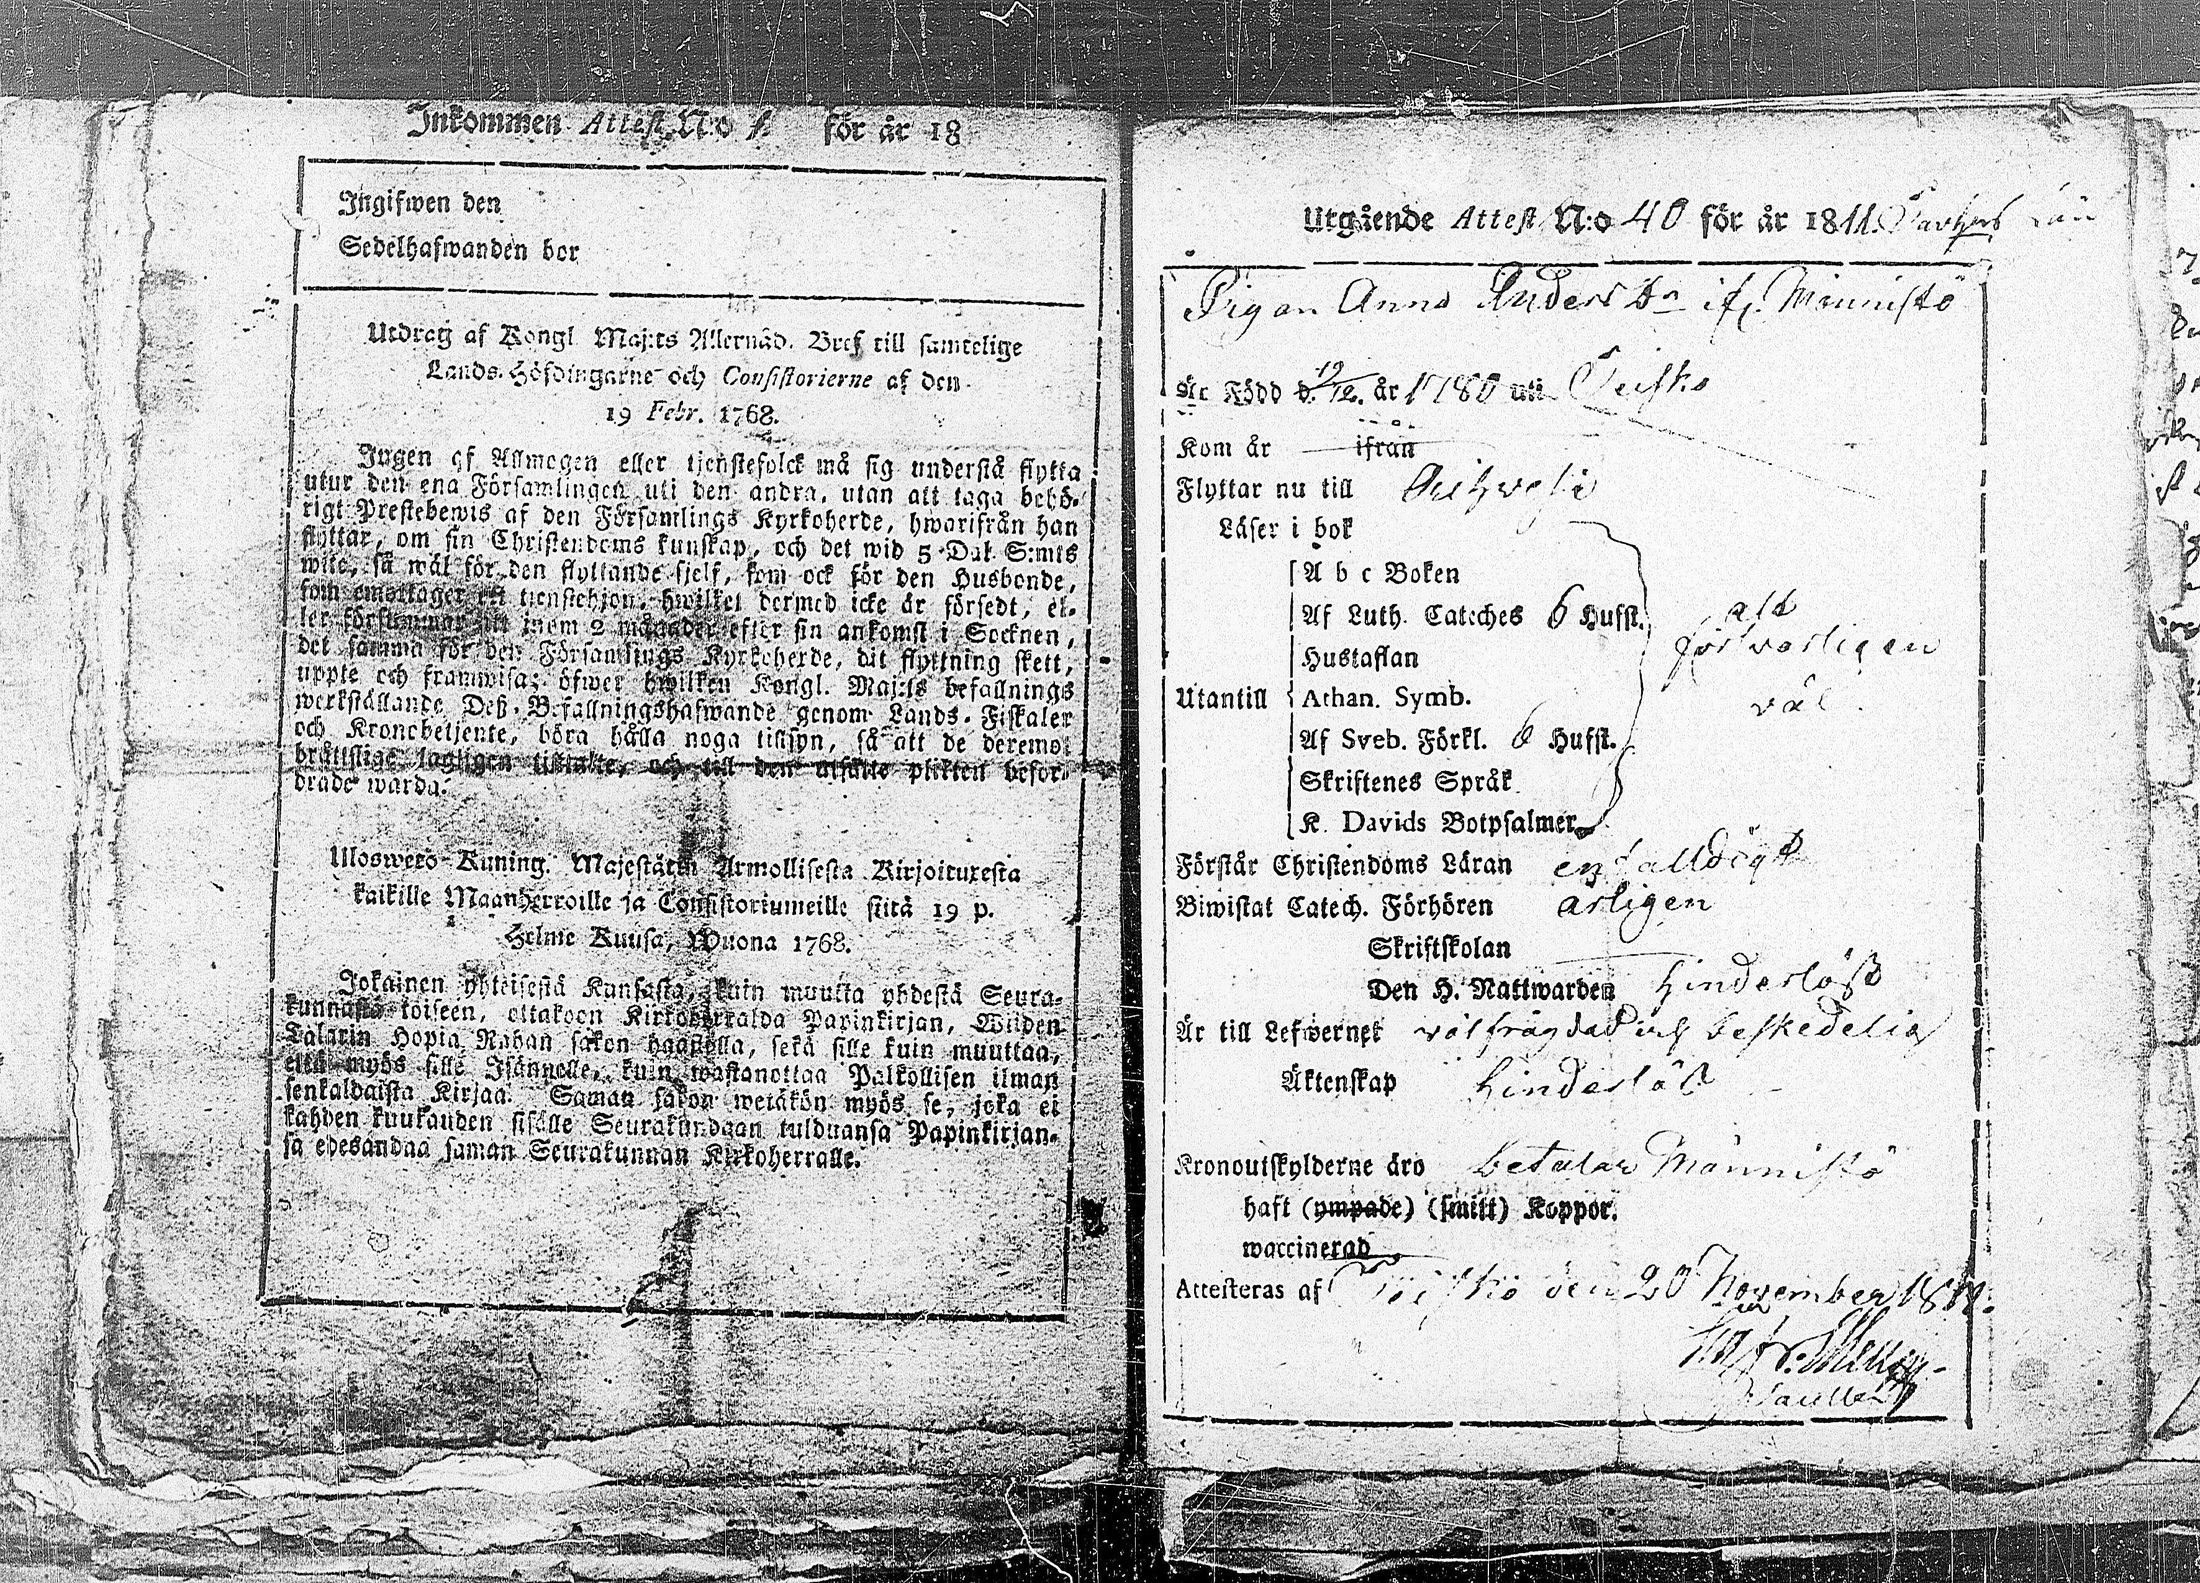 Inkommen Attest N:o 1. för år 18
Ingifwen den
Sedelhafwanden bor
Utdrag af Kongl Maj:ts Allernåd. Bref till samtelige
Lands-Höfdingarne och Consistorierne af den
19 Febr. 1768.
Ingen af Allmogen eller tjenstefolck må sig understå flytta
utur den ena Församlingen uti den andra, utan att taga behö-
rigt Prestebewis af den Församlings Kyrkoherde, hwarifrån han
flyttar, om sin Christendoms kunskap, och det wid 5 Dal. S:mts
wite, så wäl för den flyttande sjelf, som ock för den Husbonde,
som emottager ett tjenstehjon, hwilket dermed icke är försedt, el-
ler försummar att inom 2 månader efter sin ankomst i Socknen,
det samma för den Församlings Kyrkoherde, dit flyttning skett,
uppte och framwisa; öfwer hwilken Kongl. Maj:ts befallnings
werkställande Deß Befallningshafwande genom Lands-Fiskaler
och Kronobetjente, böra hålla noga tillsyn, så att de deremot
bråttslige lagligen tilltalte, och till den utsatte plikten befor-
drade warda.
Uloswero Kuning. Majestätin Armollisesta Kirjoituxesta
kaikille Maanherroille ja Consistoriumeille siitä 19 p.
Helme Kuusa, Wuona 1768.
Jokainen yhteisestä Kansasta, kuin muutta yhdestä Seura-
kunnasta toiseen, ottakoon Kirkoherralda Papinkirjan, Wiiden
Talarin Hopia Rahan sakon haastolla, sekä sille kuin muuttaa,
että myös sille Isännelle, kuin wastanottaa Palkollisen ilman
senkaldaista Kirjaa. Saman sakon wetäkön myös se, joka ei
kahden kuukauden sisälle Seurakundaan tulduansa Papinkirjan-
sa edesandaa saman Seurakunnan Kirkoherralle.
Utgående Attest N:o 40 för år 1811.
Pigan Anna Anders Dr ifr. Männistö
Är Född d. 19/12. år 1780 uti Teisko
Kom år ifrån
Flyttar nu till Orihwesi
Läser i bok
A b c Boken
Af Luth. Cateches 6 Hufst. alt
Hustaflan försvarligen
Utantill Athan. Symb. väl.
Af Sveb. Förkl. 6 Hufst.
Skriftenes Språk
K. Davids Botpsalmer
Förstår Christendoms Läran enfalldigt
Biwistat Catech. Förhören årligen
Skriftskolan
Den H. Nattwarden hinderlöst
Är till Lefwernet välfrägdad och beskedelig
Äktenskap hinderlös
Kronoutskylderne äro betalar Männistö
haft (ympade) (smitt) Koppor.
waccinerad
Attesteras af Teisko den 20 November 1811.